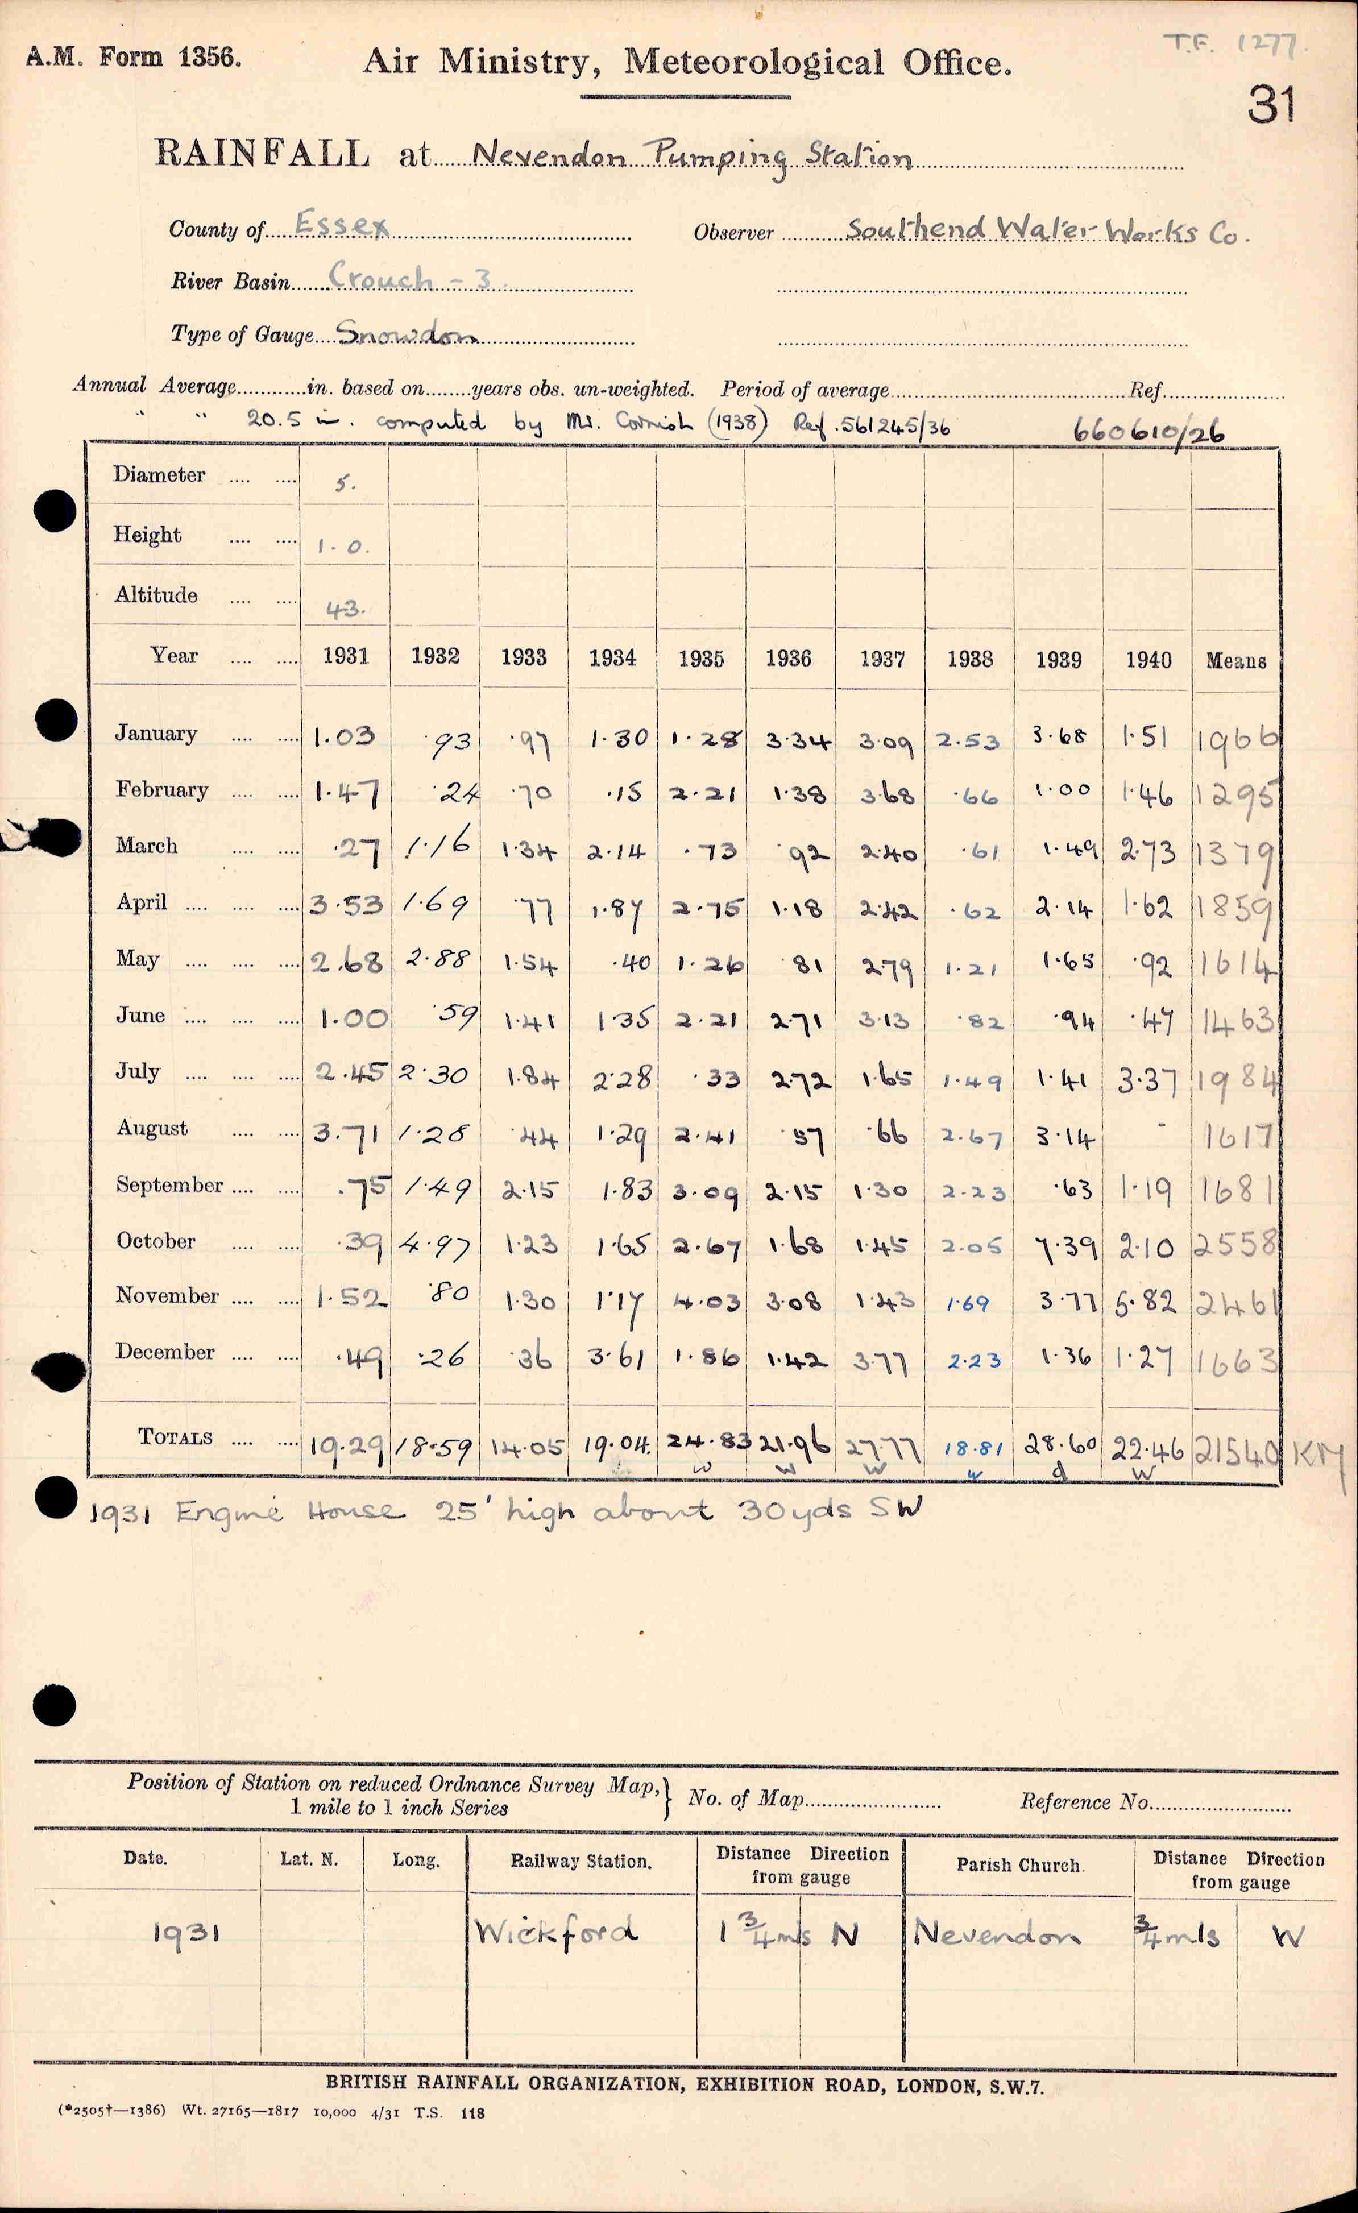 T.F. 1277.
A.M. Form 1356. Air Ministry, Meteorological Office.
31
RAINFALL at Nevendon Pumping Station
County of Essex Observer Southend Water Works Co.
River Basin Crouch - 3.
Type of Gauge Snowdon
Annual Average in. based on years obs. un-weighted. Period of average Ref.
" " 20.5 in. computed by Mr. Cornish (1938) Ref. 561245/36 660610/26
Diameter 5.
Height 1.0.
Altitude 43.
Year 1931 1932 1933 1934 1935 1936 1937 1938 1939 1940 Means
January 1.03 .93 .97 1.30 1.28 3.34 3.09 2.53 3.68 1.51 1966
February 1.47 .24 .70 .15 2.21 1.38 3.68 .66 1.00 1.46 1295
March .27 1.16 1.34 2.14 .73 .92 2.40 .61 1.49 2.73 1379
April 3.53 1.69 .77 1.87 2.75 1.18 2.42 .62 2.14 1.62 1859
May 2.68 2.88 1.54 .40 1.26 .81 2.79 1.21 1.65 .92 1614
June 1.00 .59 1.41 1.35 2.21 2.71 3.13 .82 .94 .47 1463
July 2.45 2.30 1.84 2.28 .33 2.72 1.65 1.49 1.41 3.37 1984
August 3.71 1.28 .44 1.29 2.41 .57 .66 2.67 3.14 - 1617
September .75 1.49 2.15 1.83 3.09 2.15 1.30 2.23 .63 1.19 1681
October .39 4.97 1.23 1.65 2.67 1.68 1.45 2.05 7.39 2.10 2558
November 1.52 .80 1.30 1.17 4.03 3.08 1.43 1.69 3.77 5.82 2461
December .49 .26 .36 3.61 1.86 1.42 3.77 2.23 1.36 1.27 1663
TOTALS 19.29 18.59 14.05 19.04 24.83 21.96 27.77 18.81 28.60 22.46 21540 KM
w w w w d w
1931 Engine House 25' high about 30yds SW
Position of Station on reduced Ordnance Survey Map, 1 mile to 1 inch Series } No. of Map Reference No.
Date. Lat. N. Long. Railway Station. Distance Direction from gauge Parish Church. Distance Direction from gauge
1931 Wickford 1 3/4 mls N Nevendon 3/4 mls W
BRITISH RAINFALL ORGANIZATION, EXHIBITION ROAD, LONDON, S.W.7.
(*2505†—1386) Wt. 27165—1817 10,000 4/31 T.S. 118